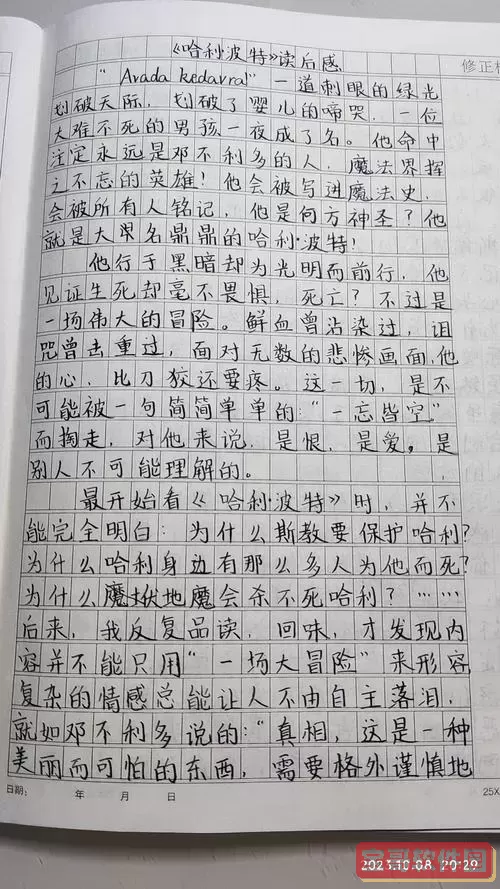 《哈利波特》读后感
修正栏
“Avada kedavra!”一道刺眼的绿光
划破天际，划破了婴儿的啼哭，一位
大难不死的男孩一夜成了名。他命中
注定永远是邓不利多的人，魔法界挥
之不忘的英雄！他会被写进魔法史，
会被所有人铭记，他是何方神圣？他
就是大名鼎鼎的哈利·波特！
他行于黑暗却为光明而前行，他
见证生死却毫不畏惧，死亡？不过是
一场伟大的冒险。鲜血曾沾染过，诅
咒曾去重过，面对无数的悲惨画面，他
的心，比刀狡还要疼。这一切，是不
可能被一句简简单单的：“一忘皆空”
而掏走，对他来说，是恨，是爱，是
别人不可能理解的。
最开始看《哈利·波特》时，并不
能完全明白：为什么斯教要保护哈利？
为什么哈利身边有那么多人为他而死？
为什么魔地魔会杀不死哈利？……
后来，我反复品读，回味，才发现内
容并不能只用“一场大冒险”来形容，
复杂的情感总能让人不由自主落泪，
就如邓不利多说的：“真相，这是一种
美丽而可怕的东西，需要格外谨慎地
日期： 年 月 日
25X
2023.10.08 20:29